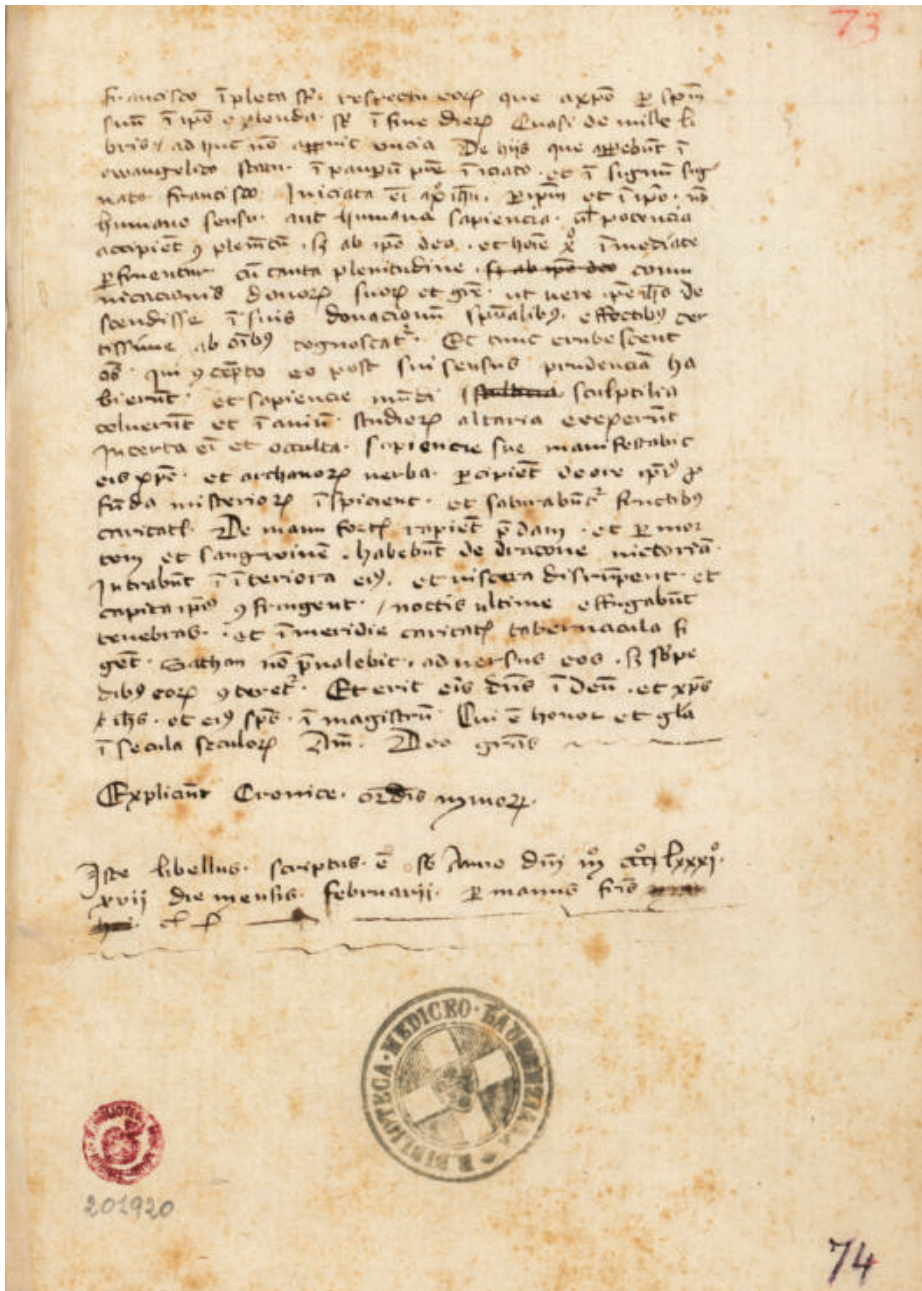 73
francisco īpleta sūt. respectu eoꝝ que a xpō ꝑ spm
suū ī ipō explenda. sūt ī fine dieꝝ Quasi de mille li
bris, ad huc nō aparuit uncia De hijs que aparebūt ī
ewangelico statu. ī pauꝑū ī iciato. et ī signum sig
nato francisco Iniciata eī a xpō ihū. ꝑ ipm et ī ipō. nō
humano sensu. aut humana sapiencia. ul potencia
accipiēt ꝯplemētū. sꝫ ab ipō deo. et hoīe xpō īmediate
ꝑfruentur cū tanta plenitudine. et ab ipō deo comu
nicacionis donoꝝ suoꝝ et grē. ut uere ipē ihs de
scendisse ī suis donacionū spūalibꝰ. effectibꝰ cer
tissime ab oībꝰ cognoscatᷣ. Et tunc erubescent
oēs. qui ꝯcepto eo post sui sensus prudenciā ha
bierūt. et sapiencie mūdi sculptilia
coluerūt et ī aniū studioꝝ altaria erexerūt
Incerta eī et occulta. sapiencie sue manifestabit
eis xpc. et archanoꝝ uerba. ꝑcipiēt de ore ipiꝰ ꝓ
fūda misterioꝝ īspicient. et saturabūtᷣ fructibꝰ
caritatꝭ. De manu fortꝭ rapiēt p̄dam. et ꝑ mor
tem et sangwinē. habebūt de dracone uictoriā.
Intrabūt ī īteriora eiꝰ. et uiscera disrūpent. et
capita ipiꝰ ꝯfringent / noctis ultime effugabūt
tenebras. et ī meridie caritatꝭ tabernacula fi
gēt. Sathan nō p̄ualebit. aduersus eos. sꝫ sb pe
dibꝰ eoꝝ ꝯteretᷣ. Et erit eis dns ī deū. et xps
ihs. et eiꝰ sps. ī magistrū Cui ē honor et gla
ī secula seculoꝝ Am. Deo gras
Expliciūt Cronice. ordis mīoꝝ.
Iste libellus. scriptus. ē sb Anno dnj mo ccco lxxxio.
xvij die mensis. februarij. ꝑ manus fris
BIBLIOTECA · MEDICEO · LAURENZIANA
201920
74